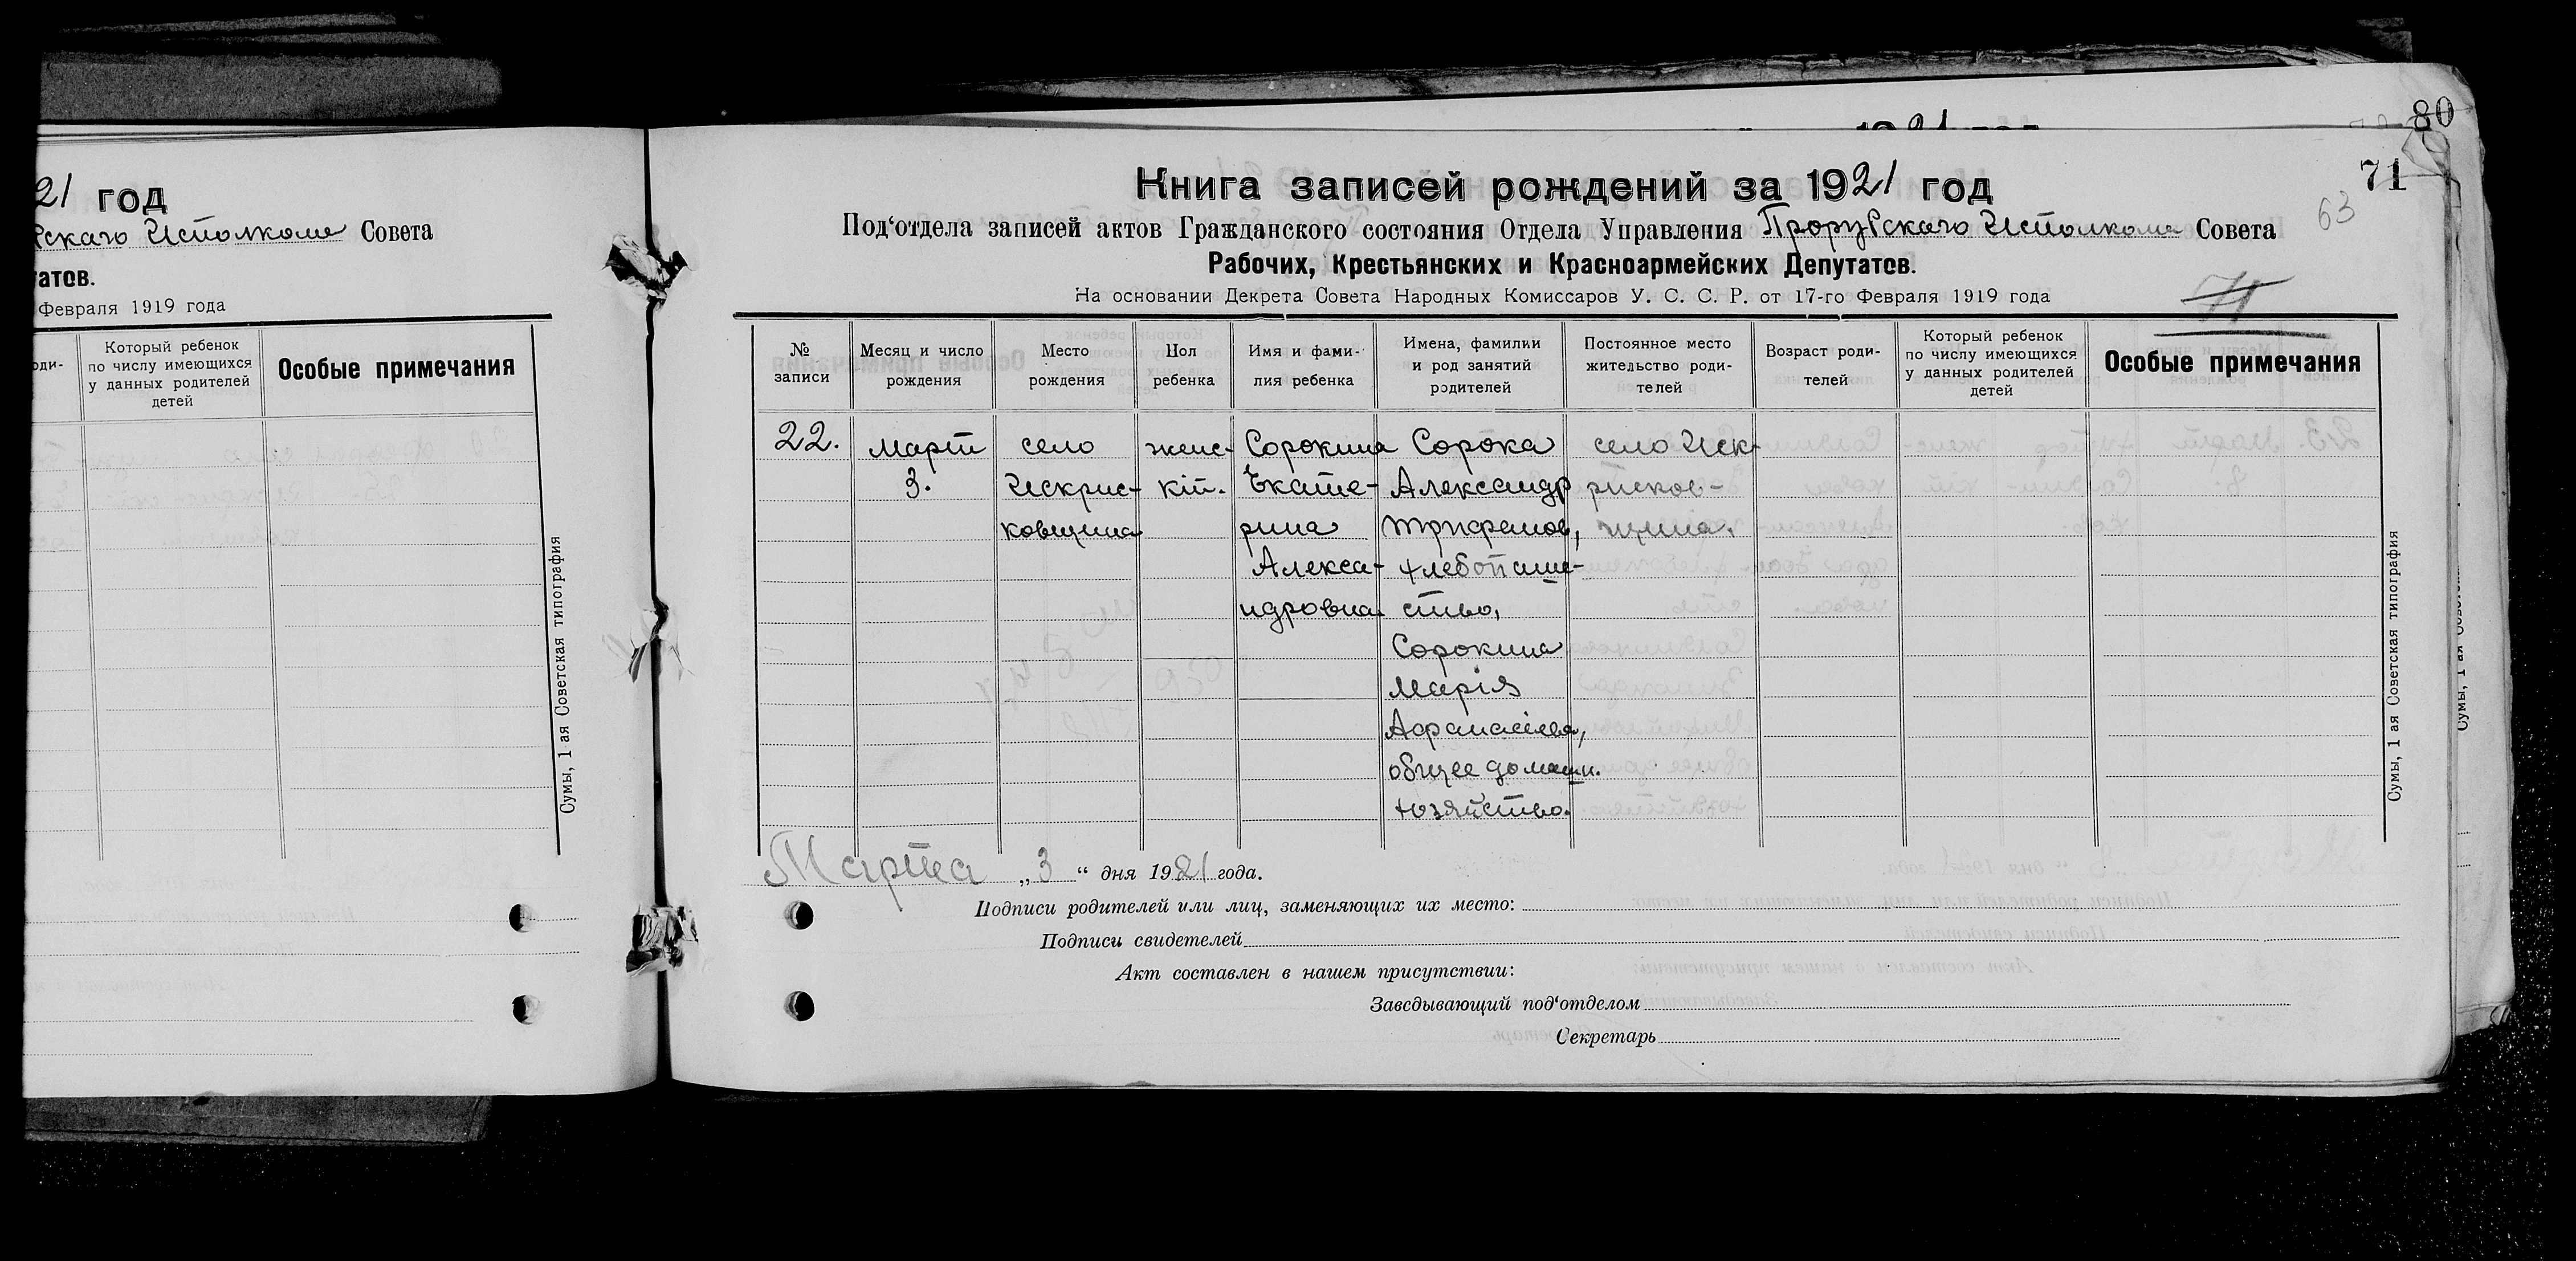 80
21 год
скаго Исполкома Совета
татов.
Февраля 1919 года
оди-
Который ребенок
по числу имеющихся
у данных родителей
детей
Особые примечания
Сумы, 1 ая Советская типография
71
63
Книга записей рождений за 1921 год
Под‘отдела записей актов Гражданского состояния Отдела Управления Прорубскаго Исполкома Совета
Рабочих, Крестьянских и Красноармейских Депутатов.
На основании Декрета Совета Народных Комиссаров У. С. С. Р. от 17-го Февраля 1919 года
71
№
записи
Месяц и число
рождения
Место
рождения
Пол
ребенка
Имя и фами-
лия ребенка
Имена, фамилии
и род занятий
родителей
Постоянное место
жительство роди-
телей
Возраст роди-
телей
Который ребенок
по числу имеющихся
у данных родителей
детей
Особые примечания
22.
март
3.
село
Искрис-
ковщина
женс-
кій.
Сорокина
Екате-
рина
Алекса-
ндровна
Сорока
Александр
Трифанов,
хлебопаше-
ство,
Сорокина
Марія
Афанасіева,
общее домашн.
хозяйство.
село Иск-
рисков-
щина.
Марта „3“ дня 1921 года.
Подписи родителей или лиц, заменяющих их место:
Подписи свидетелей
Акт составлен в нашем присутствии:
Заведывающий под‘отделом
Секретарь
Сумы, 1 ая Советская типография